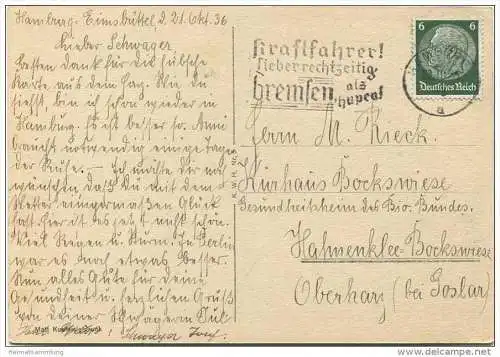 Hamburg-Eimsbüttel 2, 21. Okt. 36
Lieber Schwager
Besten Dank für die hübsche
Karte aus dem Harz. Wie Du
siehst, bin ich schon wieder in
Hamburg. Es ist besser so. Anni
braucht notwendig einige Tage
der Ruhe. — Ich möchte Dir nur
wünschen, daß Du mit dem
Wetter einigermaßen Glück
hast. Hier ist es jetzt nicht schön.
Viel Regen und Sturm. In Berlin
war es noch etwas besser.
Nun alles Gute für Deine
Gesundheit u. herzlichen Gruß
von Deiner Schwägerin
Schwager
Matt
K. W. H. Nr.
Kraftfahrer!
lieber rechtzeitig
bremsen als
hupen!
6 6
Deutsches Reich
a
Herrn M. Rieck.
Kurhaus Bockswiese
Gesundheitsheim des Bio. Bundes.
Hahnenklee-Bockswiese
Oberharz (bei Goslar)
heimatsammlung